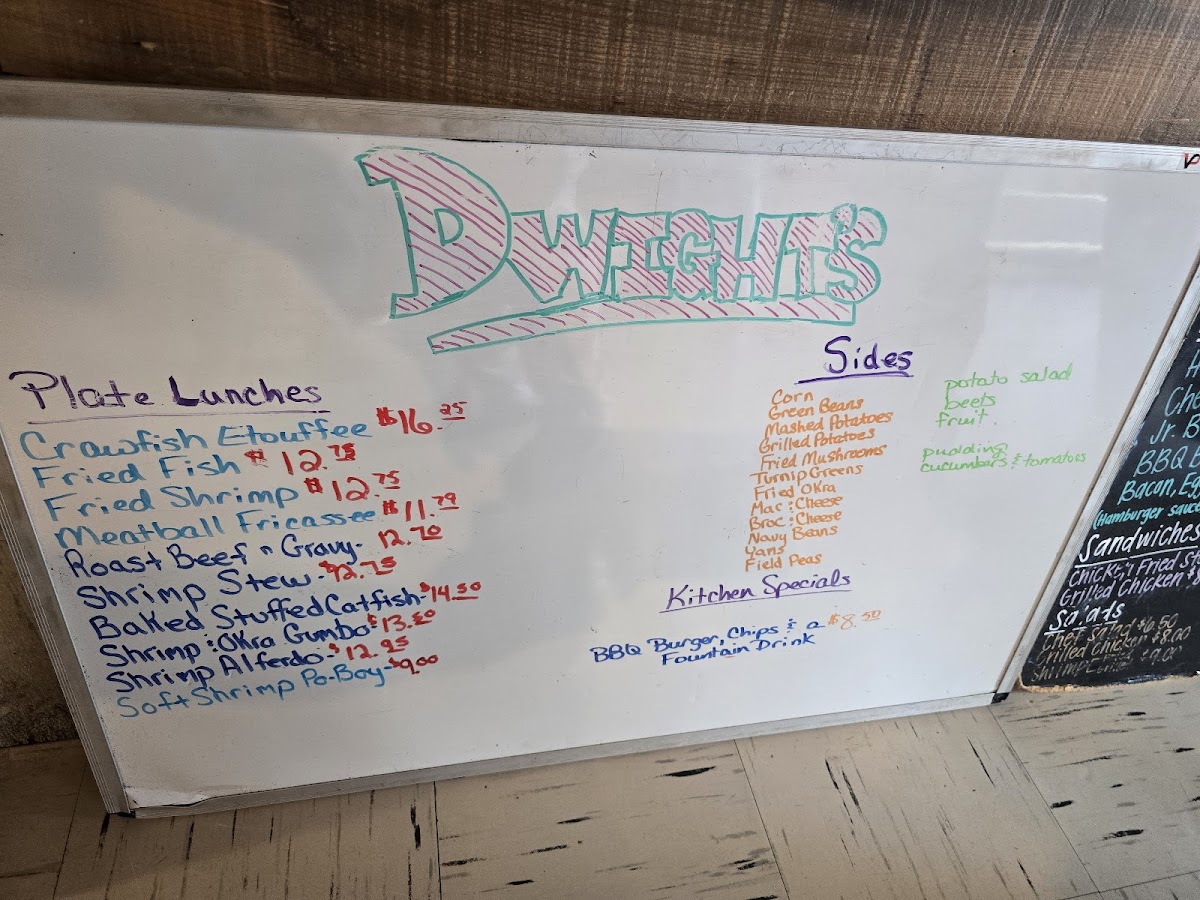 DWIGHT'S
Plate Lunches
Crawfish Etouffee $16.25
Fried Fish $12.75
Fried Shrimp $12.75
Meatball Fricassee $11.79
Roast Beef n Gravy- 12.70
Shrimp Stew-$12.75
Baked Stuffed Catfish-$14.50
Shrimp : Okra Gumbo-$13.50
Shrimp Alferdo-$12.95
Soft Shrimp Po-Boy-$9.00
Sides
Corn
Green Beans
Mashed Potatoes
Grilled Potatoes
Fried Mushrooms
Turnip Greens
Fried Okra
Mac : Cheese
Broc : Cheese
Navy Beans
Yams
Field Peas
potato salad
beets
fruit
pudding
cucumbers & tomatoes
Kitchen Specials
BBQ Burger, Chips & a $8.50
Fountain Drink
Jr. B
BBQ B
Bacon, Eg
(Hamburger sauce
Sandwiches
Chicken Fried St
Grilled Chicken $
Salads
Chef Salad $6.50
Grilled Chicken $8.00
Shrimp $9.00